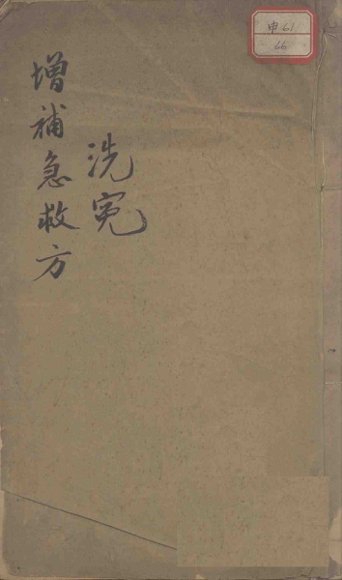 申61
66
洗冤
增補急救方